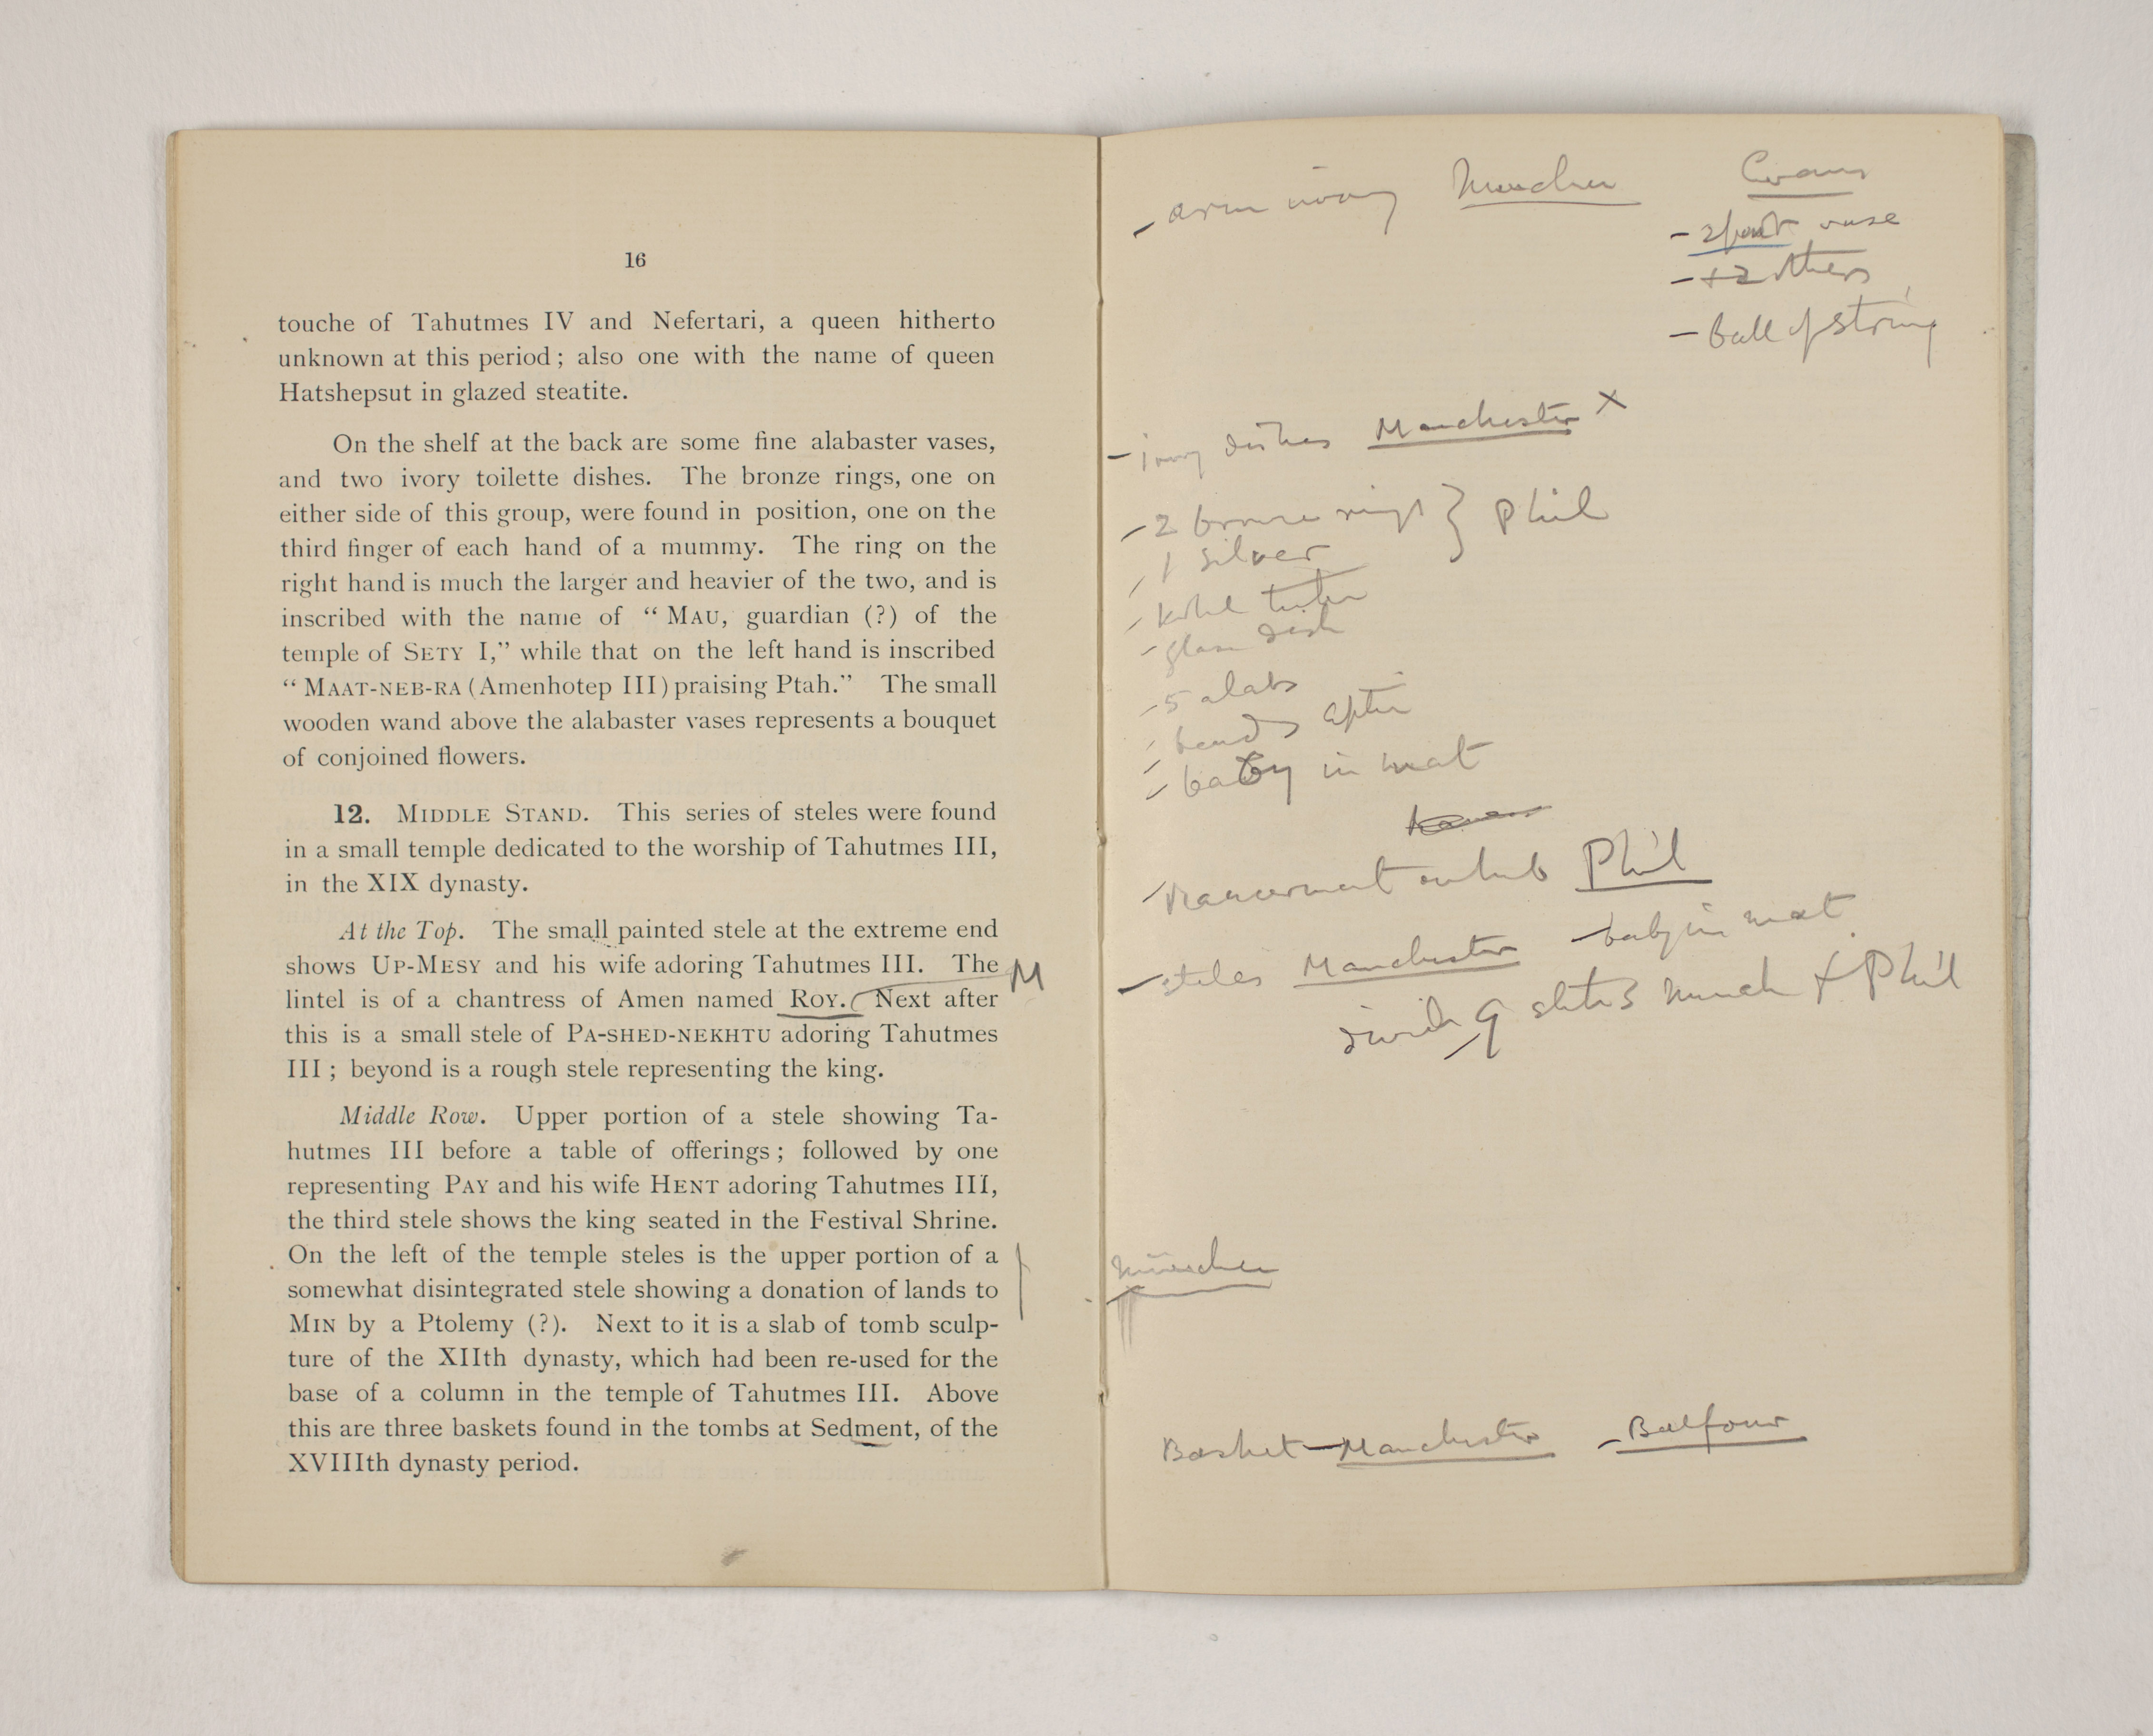 16
touche of Tahutmes IV and Nefertari, a queen hitherto
unknown at this period; also one with the name of queen
Hatshepsut in glazed steatite.
On the shelf at the back are some fine alabaster vases,
and two ivory toilette dishes. The bronze rings, one on
either side of this group, were found in position, one on the
third finger of each hand of a mummy. The ring on the
right hand is much the larger and heavier of the two, and is
inscribed with the name of “ MAU, guardian (?) of the
temple of SETY I,” while that on the left hand is inscribed
“ MAAT-NEB-RA (Amenhotep III) praising Ptah.” The small
wooden wand above the alabaster vases represents a bouquet
of conjoined flowers.
12. MIDDLE STAND. This series of steles were found
in a small temple dedicated to the worship of Tahutmes III,
in the XIX dynasty.
At the Top. The small painted stele at the extreme end
shows UP-MESY and his wife adoring Tahutmes III. The M
lintel is of a chantress of Amen named ROY. Next after
this is a small stele of PA-SHED-NEKHTU adoring Tahutmes
III; beyond is a rough stele representing the king.
Middle Row. Upper portion of a stele showing Ta-
hutmes III before a table of offerings; followed by one
representing PAY and his wife HENT adoring Tahutmes III,
the third stele shows the king seated in the Festival Shrine.
On the left of the temple steles is the upper portion of a
somewhat disintegrated stele showing a donation of lands to
MIN by a Ptolemy (?). Next to it is a slab of tomb sculp-
ture of the XIIth dynasty, which had been re-used for the
base of a column in the temple of Tahutmes III. Above
this are three baskets found in the tombs at Sedment, of the
XVIIIth dynasty period.
- arm ivory München Evans
- 2 part vase
- + 2 others
- ball of string
- ivory dishes Manchester X
- 2 bronze rings } Phil
- 1 silver
- kohl tube
- glass dish
- 5 alabs
- beads
- baby in mat
Phil
- steles Manchester - baby in mat
divide 9 Munch + Phil
München
Basket - Manchester - Balfour